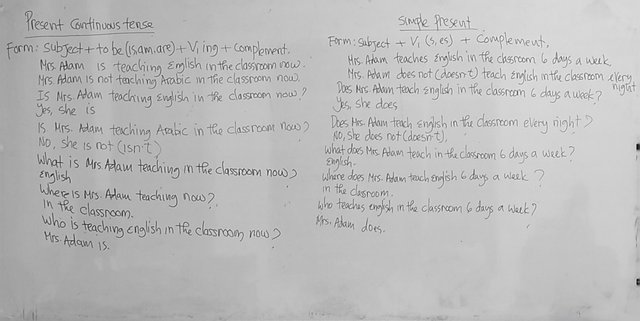 Present Continuous tense
Form: Subject + to be (is.am.are) + V₁ ing + Complement.
Mrs. Adam is teaching English in the classroom now.
Mrs. Adam is not teaching Arabic in the classroom now.
Is Mrs. Adam teaching English in the classroom now?
Yes, she is
Is Mrs. Adam teaching Arabic in the classroom now?
No, she is not (isn't)
What is Mrs. Adam teaching in the classroom now?
English
Where is Mrs. Adam teaching now?
In the classroom.
Who is teaching English in the classroom now?
Mrs. Adam is.
Simple Present
Form: Subject + V₁ (s, es) + Complement.
Mrs. Adam teaches English in the classroom 6 days a week.
Mrs. Adam does not (doesn't) teach English in the classroom every night
Does Mrs. Adam teach English in the classroom 6 days a week?
Yes, she does
Does Mrs. Adam teach English in the classroom every night?
No, she does not (doesn't).
What does Mrs. Adam teach in the classroom 6 days a week?
English.
Where does Mrs. Adam teach English 6 days a week ?
in the classroom.
Who teaches English in the classroom 6 days a week?
Mrs. Adam does.